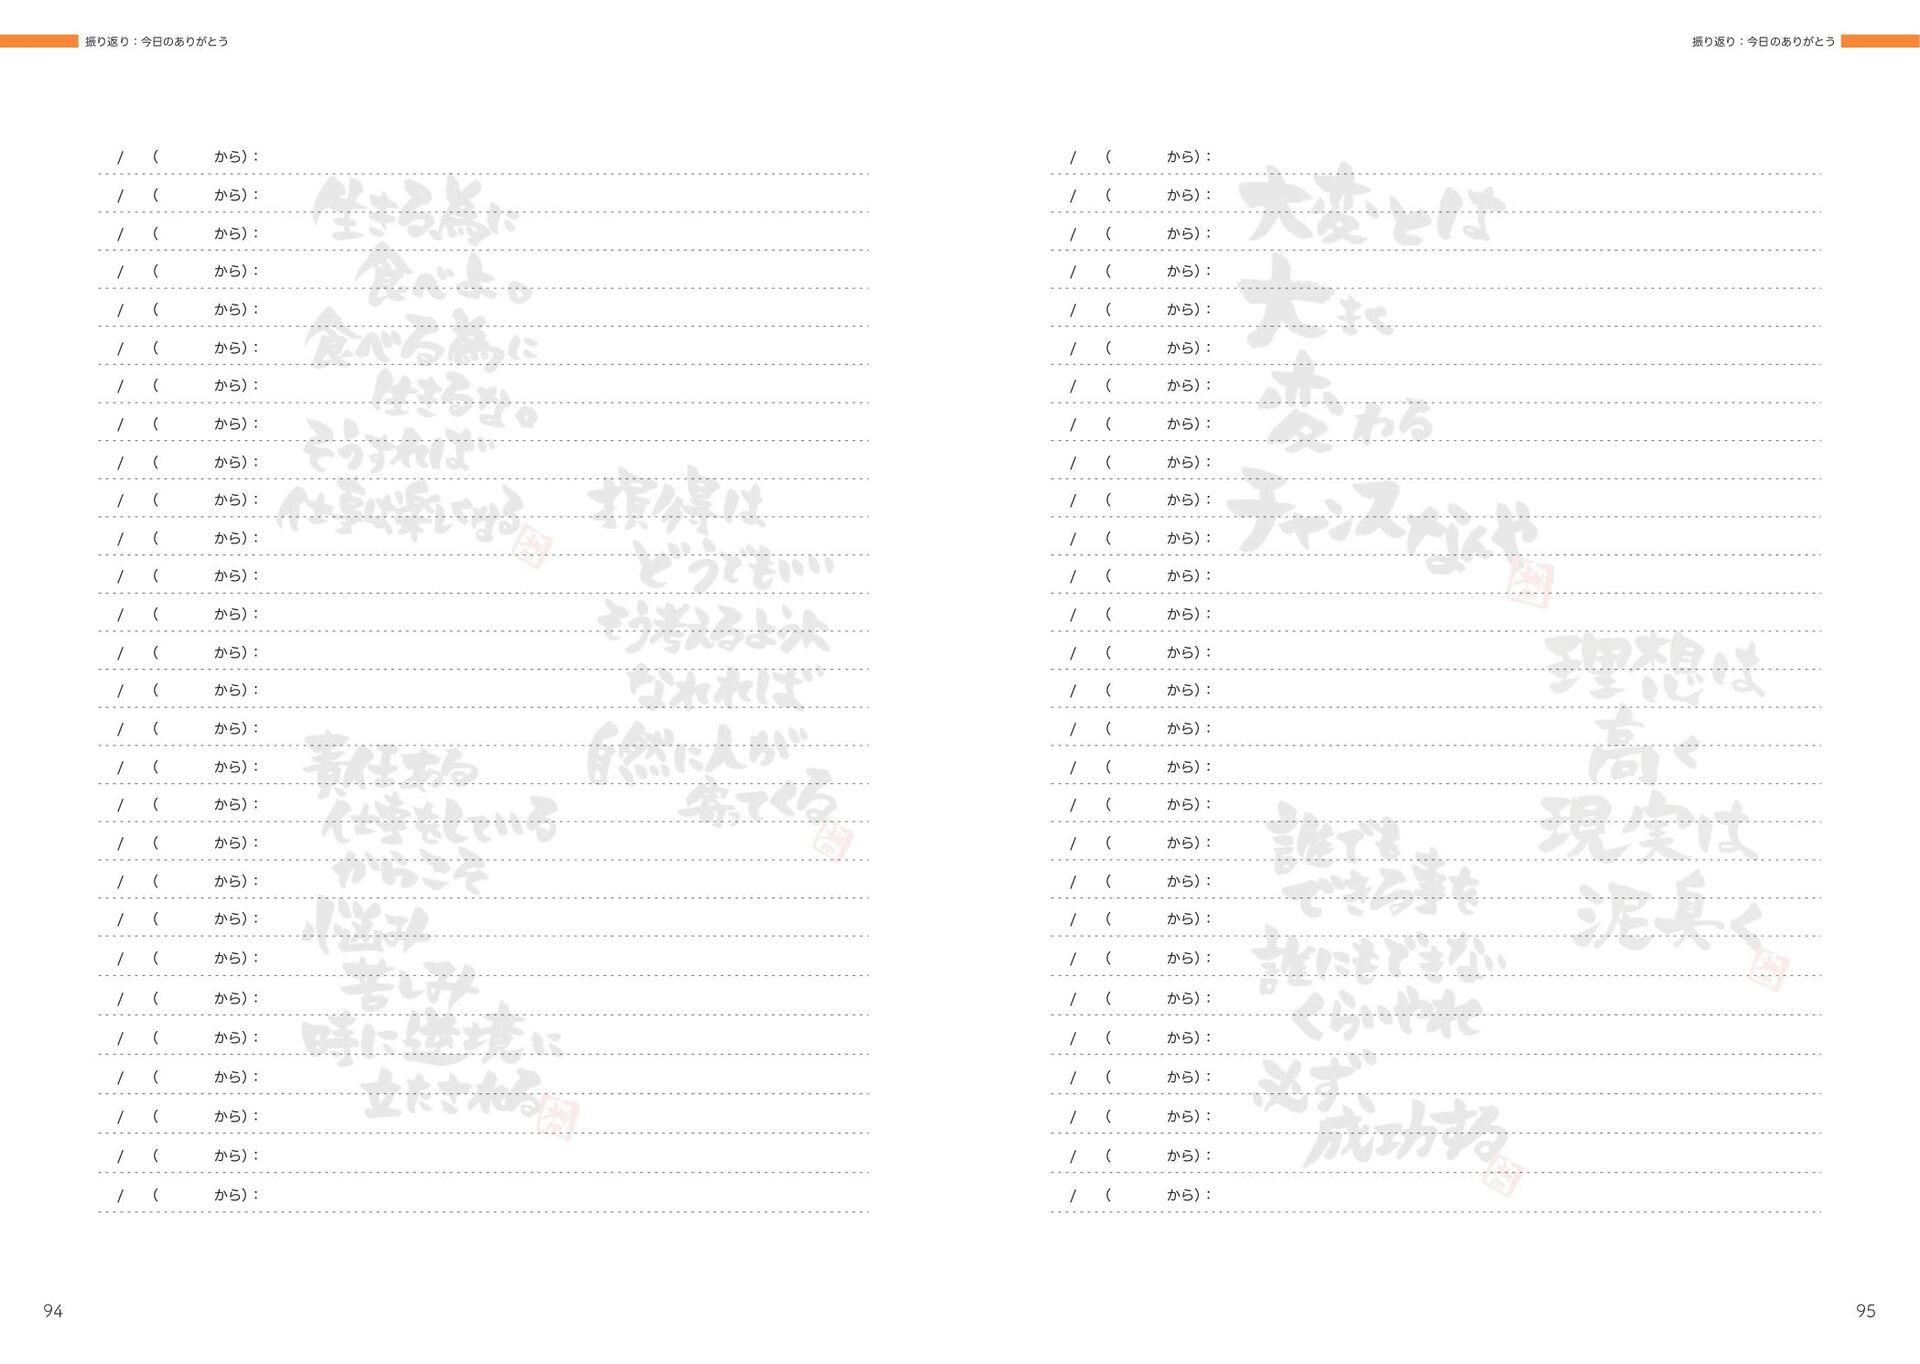 振り返り：今日のありがとう
/ （ から）：
/ （ から）：
/ （ から）：
/ （ から）：
/ （ から）：
/ （ から）：
/ （ から）：
/ （ から）：
/ （ から）：
/ （ から）：
/ （ から）：
/ （ から）：
/ （ から）：
/ （ から）：
/ （ から）：
/ （ から）：
/ （ から）：
/ （ から）：
/ （ から）：
/ （ から）：
/ （ から）：
/ （ から）：
/ （ から）：
/ （ から）：
/ （ から）：
/ （ から）：
/ （ から）：
/ （ から）：
生きる為に
食べよ。
食べる為に
生きるな。
そうすれば
仕事は楽しくなる
損得は
どうでもいい
そう考えるように
なれれば
自然に人が
寄ってくる
責任ある
仕事をしている
からこそ
悩み
苦しみ
時に逆境に
立たされる
94
振り返り：今日のありがとう
/ （ から）：
/ （ から）：
/ （ から）：
/ （ から）：
/ （ から）：
/ （ から）：
/ （ から）：
/ （ から）：
/ （ から）：
/ （ から）：
/ （ から）：
/ （ から）：
/ （ から）：
/ （ から）：
/ （ から）：
/ （ から）：
/ （ から）：
/ （ から）：
/ （ から）：
/ （ から）：
/ （ から）：
/ （ から）：
/ （ から）：
/ （ から）：
/ （ から）：
/ （ から）：
/ （ から）：
/ （ から）：
大変とは
大きく
変わる
チャンスなんや
理想は
高く
現実は
泥臭く
誰でも
できる事を
誰にもできない
くらいやれ
必ず、
成功する
95